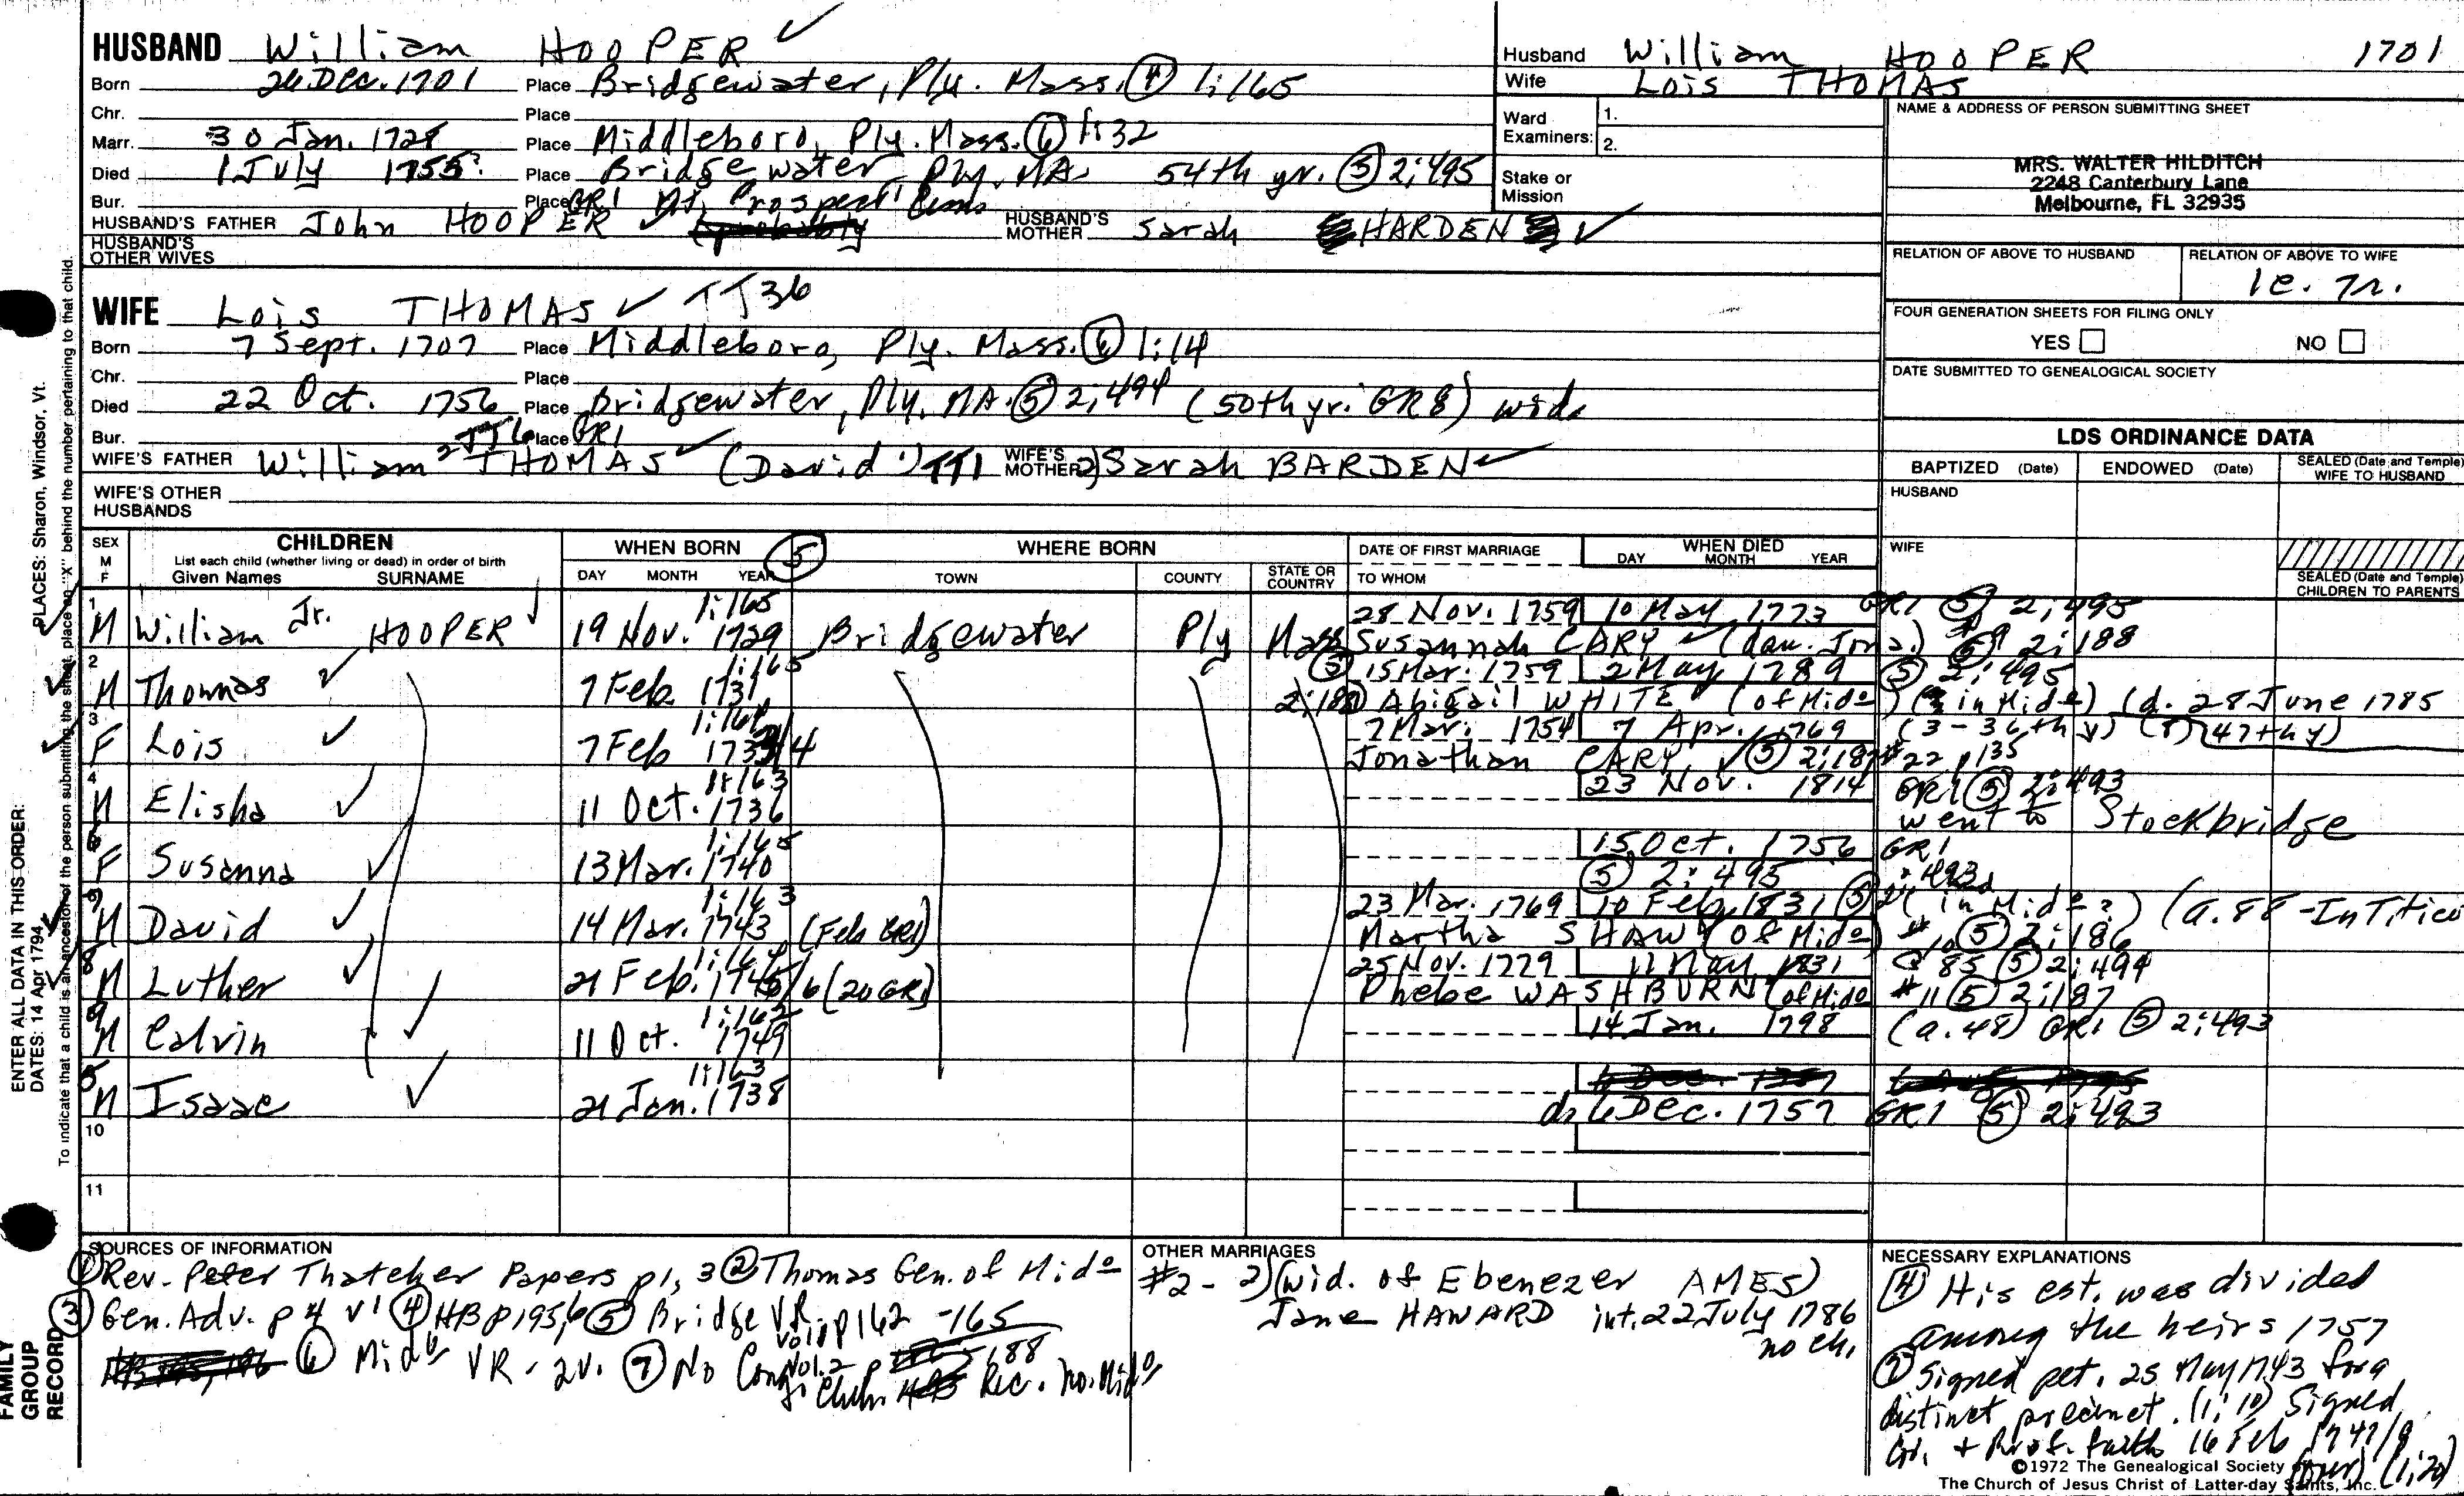 HUSBAND William HOOPER ✓
Born 26 Dec. 1701 Place Bridgewater, Ply. Mass. ④ 1:165
Chr. Place
Marr. 30 Jan. 1728 Place Middleboro, Ply. Mass. ⑥ 1:32
Died 1 July 1755? Place Bridgewater Ply. MA. 54th yr. ⑤ 2:495
Bur. Place GR1 Mt. Prospect Cem.
HUSBAND'S FATHER John HOOPER ✓ HUSBAND'S MOTHER Sarah HARDEN ✓
HUSBAND'S OTHER WIVES
Husband William HOOPER 1701
Wife Lois THOMAS
Ward Examiners: 1.
2.
Stake or Mission
NAME & ADDRESS OF PERSON SUBMITTING SHEET
MRS. WALTER HILDITCH
2248 Canterbury Lane
Melbourne, FL 32935
RELATION OF ABOVE TO HUSBAND RELATION OF ABOVE TO WIFE
FOUR GENERATION SHEETS FOR FILING ONLY
YES NO
DATE SUBMITTED TO GENEALOGICAL SOCIETY
WIFE Lois THOMAS ✓ TT36
Born 7 Sept. 1707 Place Middleboro, Ply. Mass. ⑥ 1:14
Chr. Place
Died 22 Oct. 1756 Place Bridgewater, Ply. MA. ⑤ 2:494 (50th yr. GR8) wid.
Bur. Place GR1
WIFE'S FATHER William THOMAS ✓ (David TT1 WIFE'S MOTHER 2) Sarah BARDEN ✓
WIFE'S OTHER HUSBANDS
LDS ORDINANCE DATA
BAPTIZED (Date) ENDOWED (Date) SEALED (Date and Temple) WIFE TO HUSBAND
HUSBAND
WIFE
SEALED (Date and Temple) CHILDREN TO PARENTS
SEX M F CHILDREN List each child (whether living or dead) in order of birth Given Names SURNAME
WHEN BORN ⑤ DAY MONTH YEAR
WHERE BORN TOWN COUNTY STATE OR COUNTRY
DATE OF FIRST MARRIAGE TO WHOM
WHEN DIED DAY MONTH YEAR
1 M William Jr. HOOPER ✓ 19 Nov. 1729 1:165 Bridgewater Ply Mass 28 Nov. 1759 10 May 1773 GR1 ⑤ 2:495
Susannah CARY ✓ (dau. Jona.) ⑤ 2:188
2 M Thomas ✓ 7 Feb. 1731 1:165 ⑤ 15 Mar. 1759 2 May 1789 ⑤ 2:495
2:188 Abigail WHITE (of Mido) (in Mido) (d. 28 June 1785
3 F Lois ✓ 7 Feb 1733/4 1:164 7 Mar. 1754 7 Apr. 1769 (3-36th y) (47th y)
Jonathan CARY ✓ ⑤ 2:187 #22 p135
4 M Elisha ✓ 11 Oct. 1736 1:163 23 Nov. 1814 GR1 ⑤ 2:493
went to Stockbridge
6 F Susanna ✓ 13 Mar. 1740 1:165 15 Oct. 1756 GR1
⑤ 2:495
7 M David ✓ 14 Mar. 1743 1:163 (Feb GR1) 23 Mar. 1769 10 Feb. 1831 ⑤ 2:493 (in Mido?) (a. 88 -
Martha SHAW (of Mido) #10 ⑤ 2:186
8 M Luther ✓ 21 Feb. 1745/6 1:164 (20 GR1) 25 Nov. 1779 11 May 1831 a 85 ⑤ 2:494
Phebe WASHBURN (of Mido #11 ⑤ 2:187
9 M Calvin ✓ 11 Oct. 1749 1:162 14 Jan. 1798 (a. 48) GR1 ⑤ 2:493
5 M Isaac ✓ 21 Jan. 1738 1:163 d. 6 Dec. 1757 GR1 ⑤ 2:493
10
11
SOURCES OF INFORMATION
① Rev. Peter Thatcher Papers p1, 3 ② Thomas Gen. of Mido
③ Gen. Adv. p 4 v1 ④ HB p195,6 ⑤ Bridge VR. Vol 1 p162-165
⑥ Mido VR - 2v. Vol. 2 p 188 ⑦ No Cong'l. Chh. Rec. No. Mido
OTHER MARRIAGES
#2 - 2) (wid. of Ebenezer AMES)
Jane HAWARD int. 22 July 1786
no ch.
NECESSARY EXPLANATIONS
④ His est. was divided
among the heirs 1757
⑦ Signed pet. 25 May 1743 for a
distinct precinct. (1:10) Signed
+ Prof. faith 16 Feb 1747/8
(over) (1:20)
©1972 The Genealogical Society of
The Church of Jesus Christ of Latter-day Saints, Inc.
PLACES: Sharon, Windsor, Vt.
ENTER ALL DATA IN THIS ORDER:
DATES: 14 Apr 1794
To indicate that a child is an ancestor of the person submitting the sheet, place an "X" behind the number pertaining to that child.
FAMILY GROUP RECORD